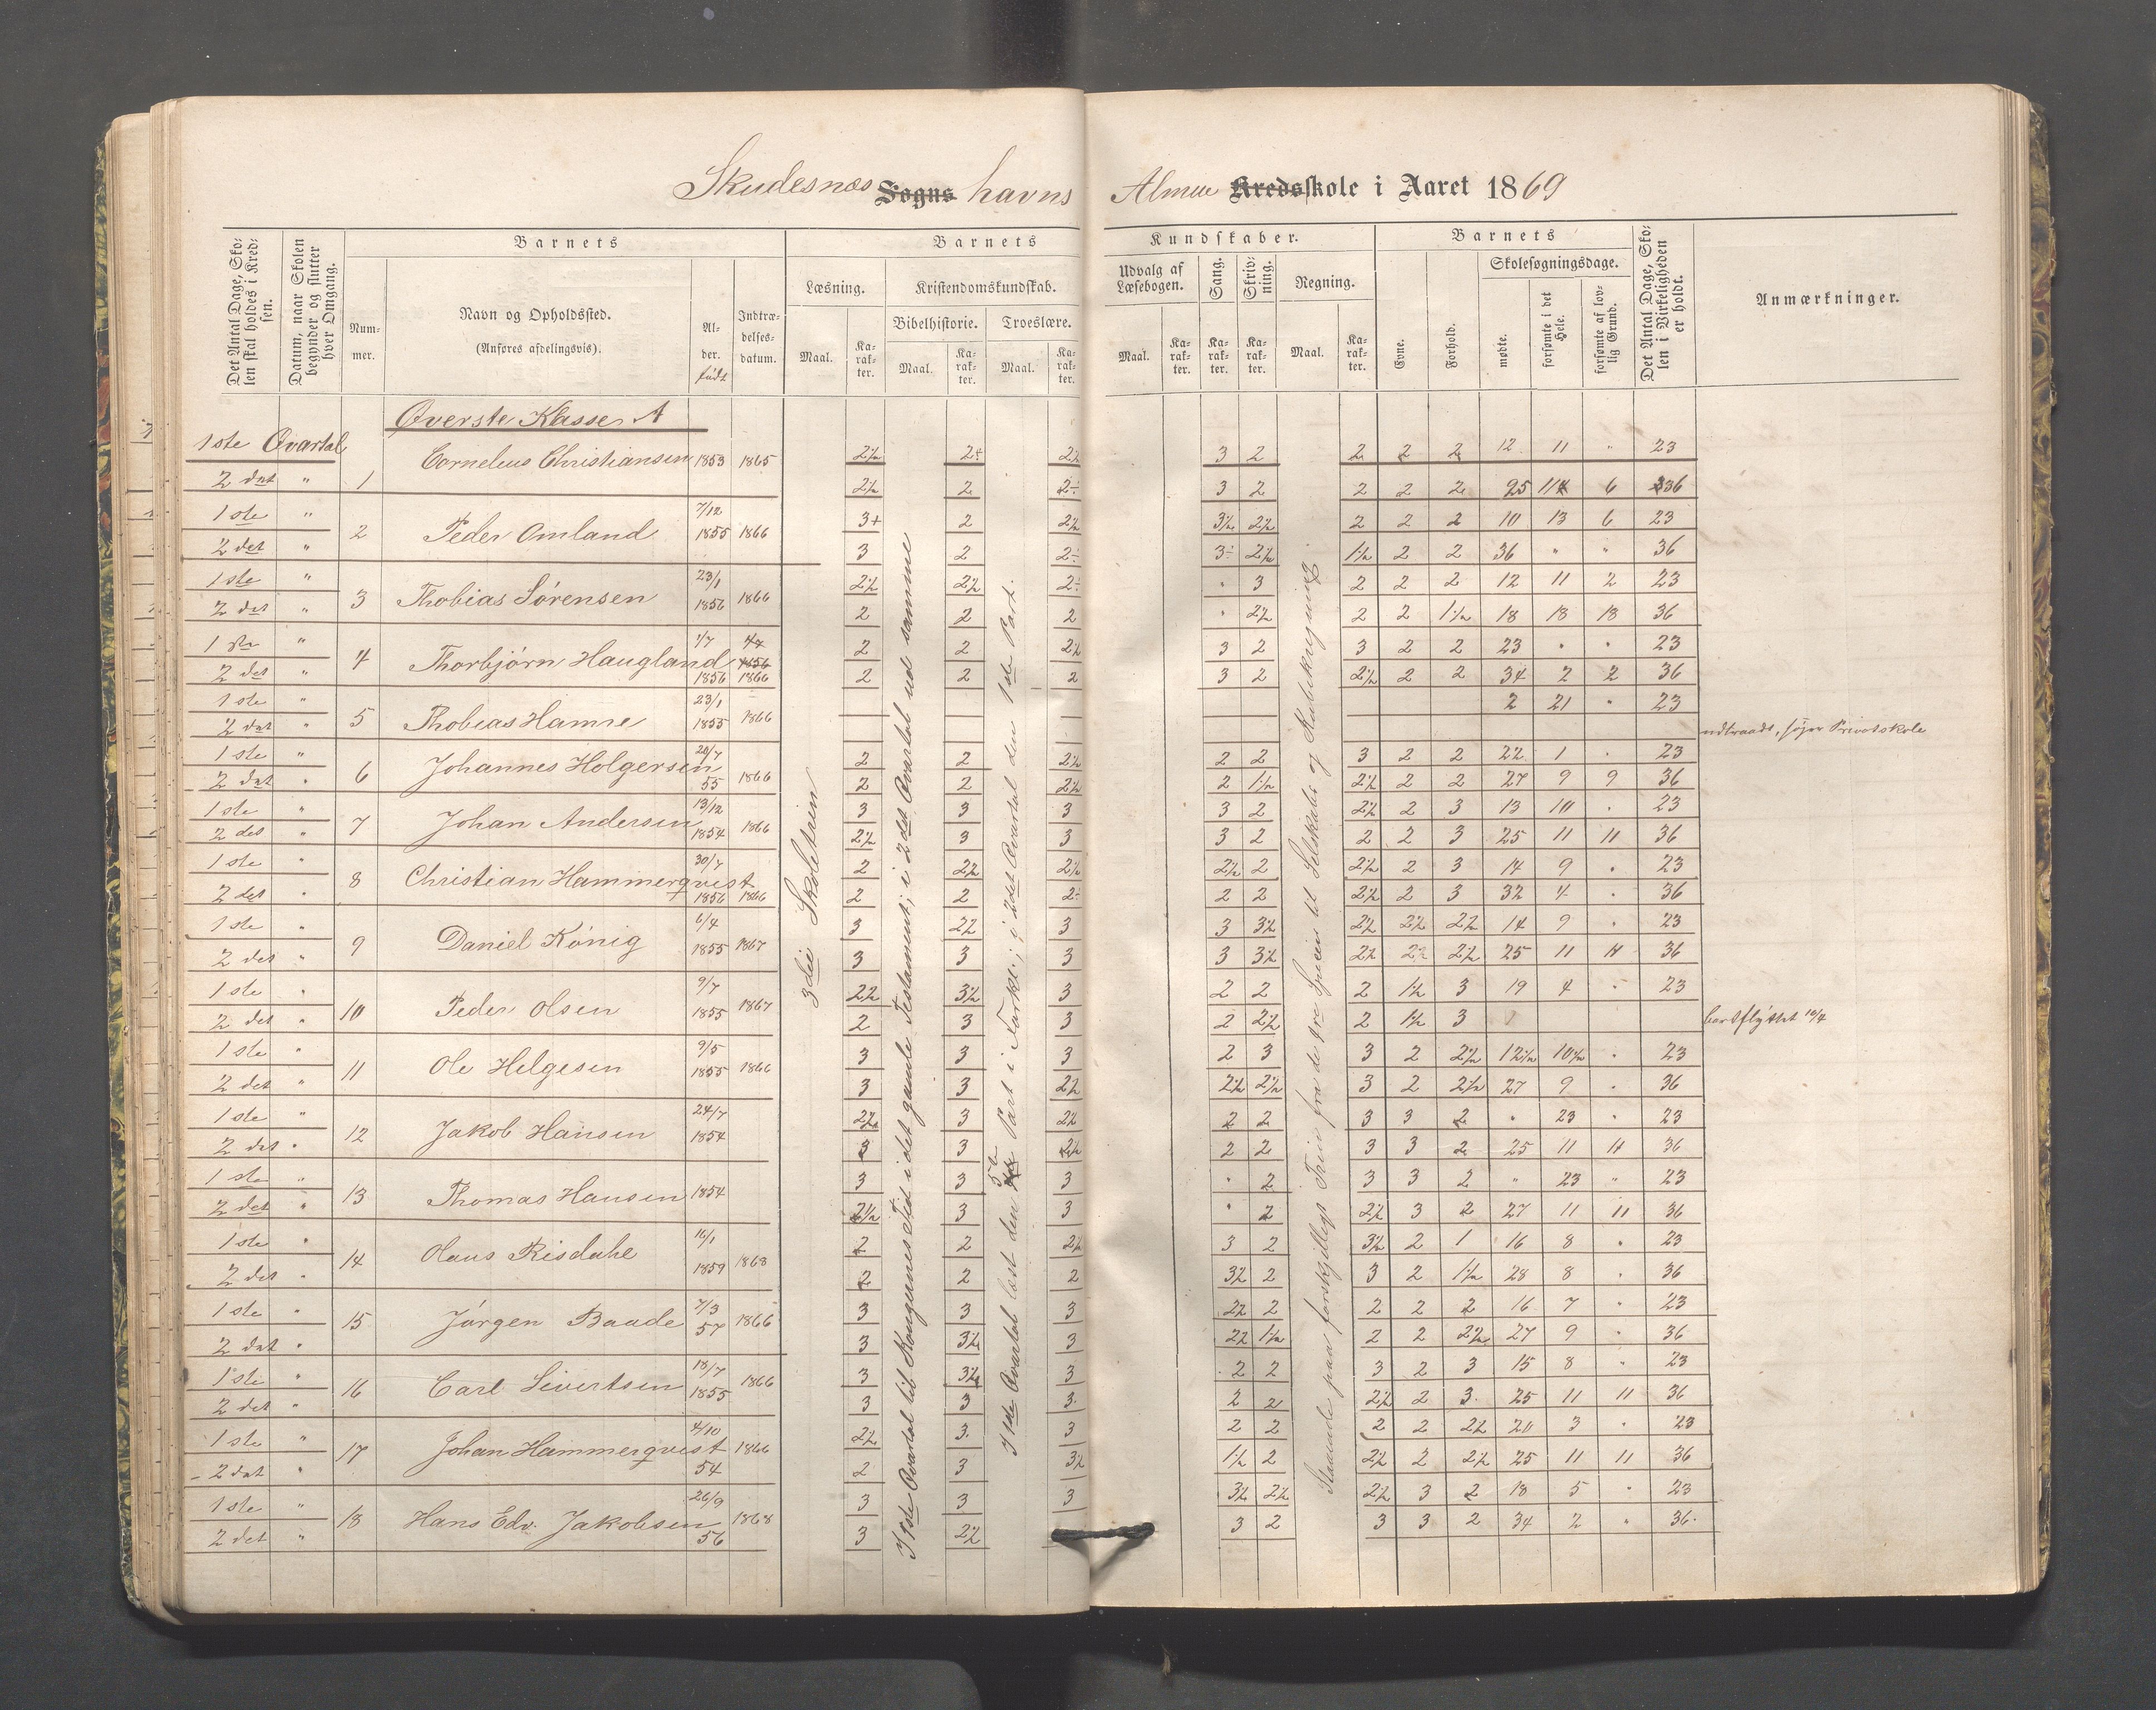 Skudesnæs Sogns havns Almue Kredsskole i Aaret 1869
Det Antal Dage, Skolen skal holdes i Kredsen.
Datum, naar Skolen begynder og slutter hver Omgang.
Barnets
Nummer.
Navn og Opholdssted.
(Anføres afdelingsvis).
Alder.
født
Indtrædelsesdatum.
Barnets Kundskaber.
Læsning.
Maal. Karakter.
Kristendomskundskab.
Bibelhistorie. Troeslære.
Maal. Karakter. Maal. Karakter.
Udvalg af Læsebogen.
Maal. Karakter.
Sang. Karakter.
Skrivning. Karakter.
Regning.
Maal. Karakter.
Barnets
Evne. Forhold.
Skolesøgningsdage.
mødte. forsømte i det Hele. forsømte af lovlig Grund.
Det Antal Dage, Skolen i Virkeligheden er holdt.
Anmærkninger.
Øverste Klasse A
1ste Qvartal 1 Cornelius Christiansen 1853 1865 2½ 2+ 2½ 3 2 2 2 2 12 11 " 23
2det " 2½ 2 2÷ 3 2 2 2 2 25 11 6 36
1ste " 2 Peder Omland 7/12 1855 1866 3+ 2 2½ 3½ 2½ 2 2 2 10 13 6 23
2det " 3 2 2÷ 3÷ 2½ 1½ 2 2 36 " " 36
1ste " 3 Thobias Sørensen 23/1 1856 1866 2½ 2½ 2÷ " 3 2 2 2 12 11 2 23
2det " 2 2 2 " 2½ 2 2 1½ 18 18 18 36
1ste " 4 Thorbjørn Haugland 1/7 1856 1866 2 2 2½ 3 2 3 2 2 23 " " 23
2det " 2 2 2 3 2 2½ 2 2 34 2 2 36
1ste " 5 Thobias Hamre 23/1 1855 1866 2 21 " 23
2det " udtraadt, søger Privatskole
1ste " 6 Johannes Holgersen 20/7 55 1866 2 2 2½ 2 2 3 2 2 22 1 " 23
2det " 2 2 2½ 2 1½ 2½ 2 2 27 9 9 36
1ste " 7 Johan Andersen 13/12 1854 1866 3 3 3 3 2 2½ 2 3 13 10 " 23
2det " 2½ 3 3 3 2 2 2 3 25 11 11 36
1ste " 8 Christian Hammerqvist 30/7 1856 1866 2 2½ 2½ 2½ 2 2½ 2 3 14 9 " 23
2det " 2 2 2÷ 2 2 2½ 2 3 32 4 " 36
1ste " 9 Daniel König 6/4 1855 1867 3 2½ 3 3 3½ 2½ 2½ 2½ 14 9 " 23
2det " 3 3 3 3 3½ 2½ 2½ 2½ 25 11 11 36
1ste " 10 Peder Olsen 9/7 1855 1867 2½ 3½ 3 2 2 2 1½ 3 19 4 " 23
2det " 2 3 3 2 2½ 2 1½ 3 bortflyttet 10/4
1ste " 11 Ole Helgesen 9/5 1855 1866 3 3 3 2 3 3 2 2½ 12½ 10½ " 23
2det " 3 3 2½ 2½ 2½ 3 2 2½ 27 9 " 36
1ste " 12 Jakob Hansen 24/7 1854 2½ 3 2½ 2 2 3 3 2 " 23 " 23
2det " 3 3 2½ 2 2 3 3 2 25 11 11 36
1ste " 13 Thomas Hansen 1854 3 3 3 " 2 3 3 2 " 23 " 23
2det " 2½ 3 3 " 2 2½ 3 2 27 11 11 36
1ste " 14 Olaus Risdahl 16/1 1859 1868 2 2 2½ 3 2 3½ 2 1 16 8 " 23
2det " 2 2 2 3½ 2 3 2 1½ 28 8 " 36
1ste " 15 Jørgen Baade 7/3 57 1866 3 3 3 2½ 2 2 2 2 16 7 " 23
2det " 3 3½ 3 2½ 1½ 2 2 2½ 27 9 " 36
1ste " 16 Carl Sivertsen 18/7 1855 1866 3 3½ 3 2 2 3 2 3 15 8 " 23
2det " 3 3 3 2 2 2½ 2 3 25 11 11 36
1ste " 17 Johan Hammerqvist 4/10 54 1866 2½ 3 3 2 2 2 2 2½ 20 3 " 23
2det " 2 3 3½ 1½ 2 2½ 2 2½ 25 11 11 36
1ste " 18 Hans Edv. Jakobsen 26/9 56 1868 3 3 3 3½ 2½ 2½ 3 2 18 5 " 23
2det " 3 2½ 3 2 3 3 2 34 2 " 36
3die Skoletrin
I 1ste Qvartal til Kongernes Tid i det gamle Testament; i 2det Qvartal ud samme
I 1ste Qvartal læst den 3die Part i Forkl.; i 2det Qvartal den 1ste Part.
Staaende paa forskjelligt Trin fra de fire Species til Selskabs og Kubikregning